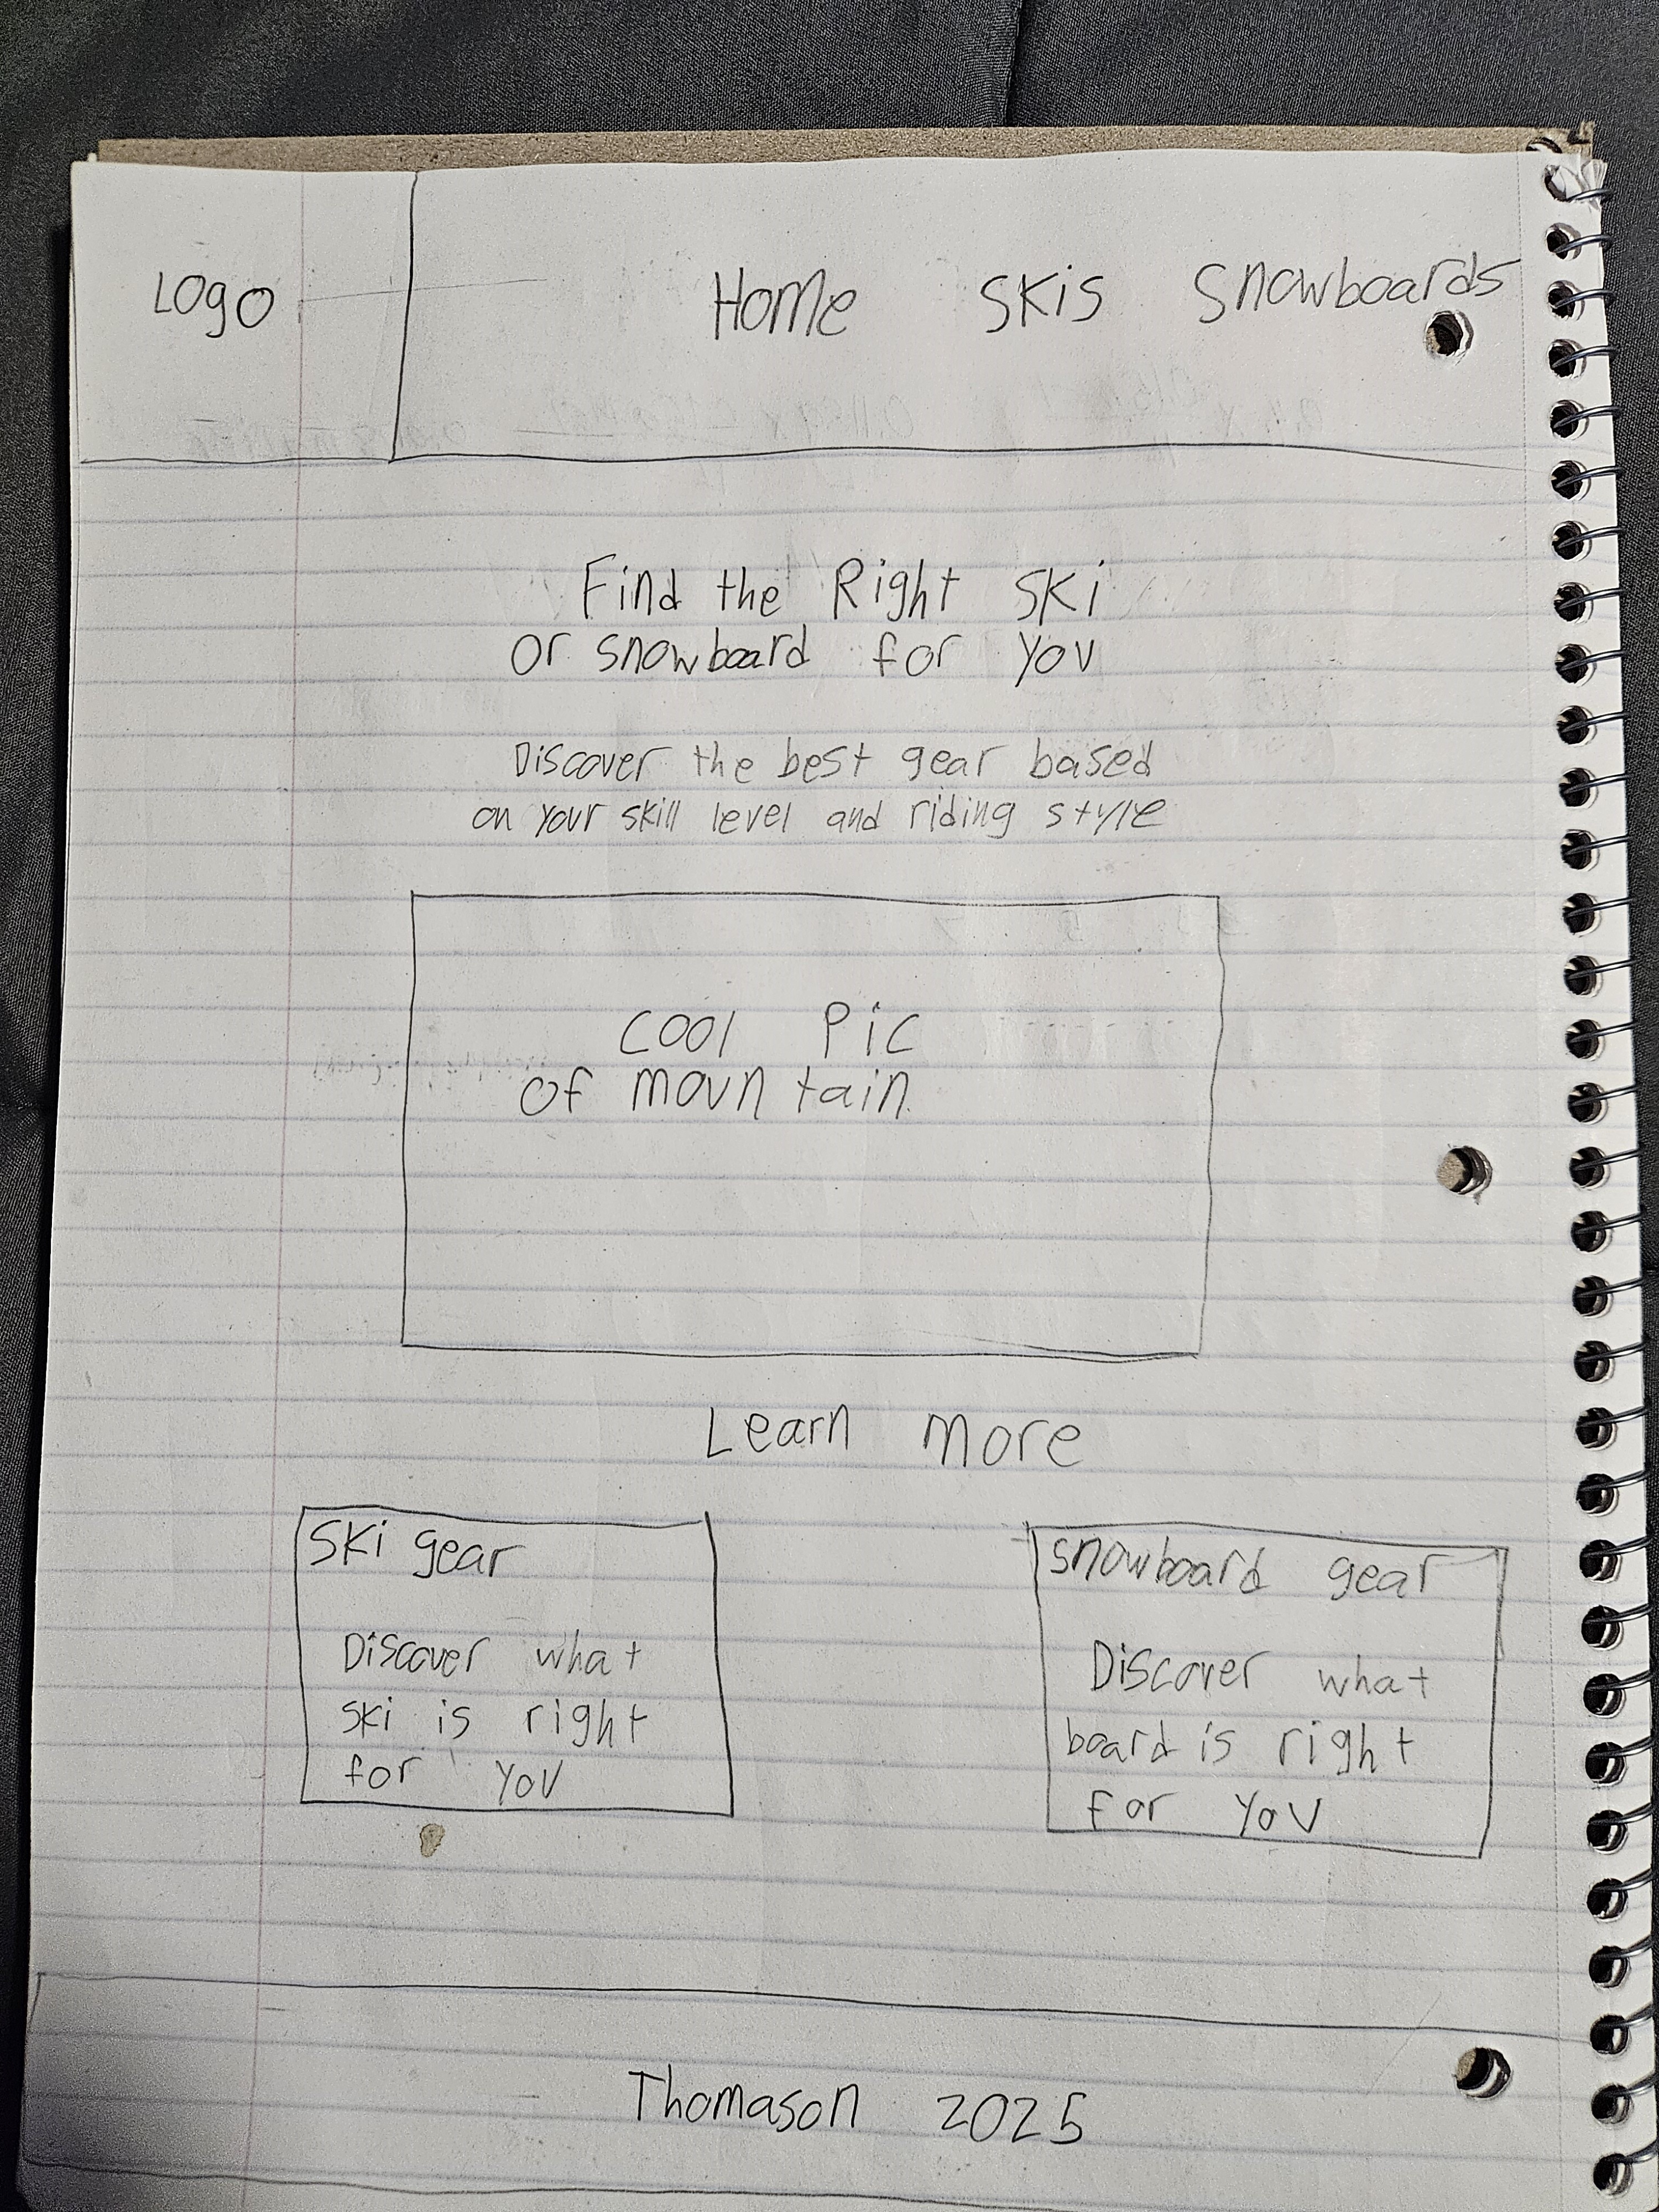 Logo
Home Skis Snowboards
Find the Right Ski
or snowboard for you
Discover the best gear based
on your skill level and riding style
Cool Pic
of mountain
Learn more
Ski gear
Discover what
ski is right
for you
snowboard gear
Discover what
board is right
for you
Thomason 2025